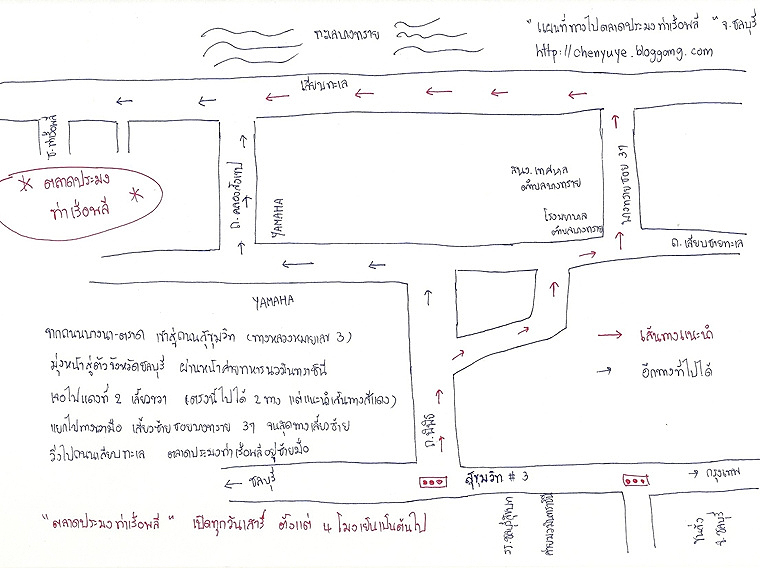 "แผนที่ทางไปตลาดประมงท่าเรือพลี" จ.ชลบุรี
http://chenyuye.bloggang.com
ทะเลบางทราย
เลียบทะเล
ซ.ท่าเรือพลี
* ตลาดประมง *
ท่าเรือพลี
ถ.คลองสังเขป
YAMAHA
สนง.เทศบาล
ตำบลบางทราย
โรงพยาบาล
ตำบลบางทราย
บางทรายซอย 37
ถ.เลียบชายทะเล
YAMAHA
จากถนนบางนา-ตราด เข้าสู่ถนนสุขุมวิท (ทางหลวงหมายเลข 3)
มุ่งหน้าสู่ตัวจังหวัดชลบุรี ผ่านหน้าค่ายทหารนวมินทราชินี
เจอไฟแดงที่ 2 เลี้ยวขวา (ตรงนี้ไปได้ 2 ทาง แต่แนะนำเส้นทางสีแดง)
แยกไปทางขวามือ เลี้ยวซ้ายซอยบางทราย 37 จนสุดทางเลี้ยวซ้าย
วิ่งไปถนนเลียบทะเล ตลาดประมงท่าเรือพลีอยู่ซ้ายมือ
เส้นทางแนะนำ
อีกทางที่ไปได้
ถ.พิพิธ
ชลบุรี
สุขุมวิท # 3
กรุงเทพ
รร.ชลบุรีสุขบท
ค่ายนวมินทราชินี
จ.ชลบุรี
"ตลาดประมงท่าเรือพลี" เปิดทุกวันเสาร์ ตั้งแต่ 4 โมงเย็นเป็นต้นไป